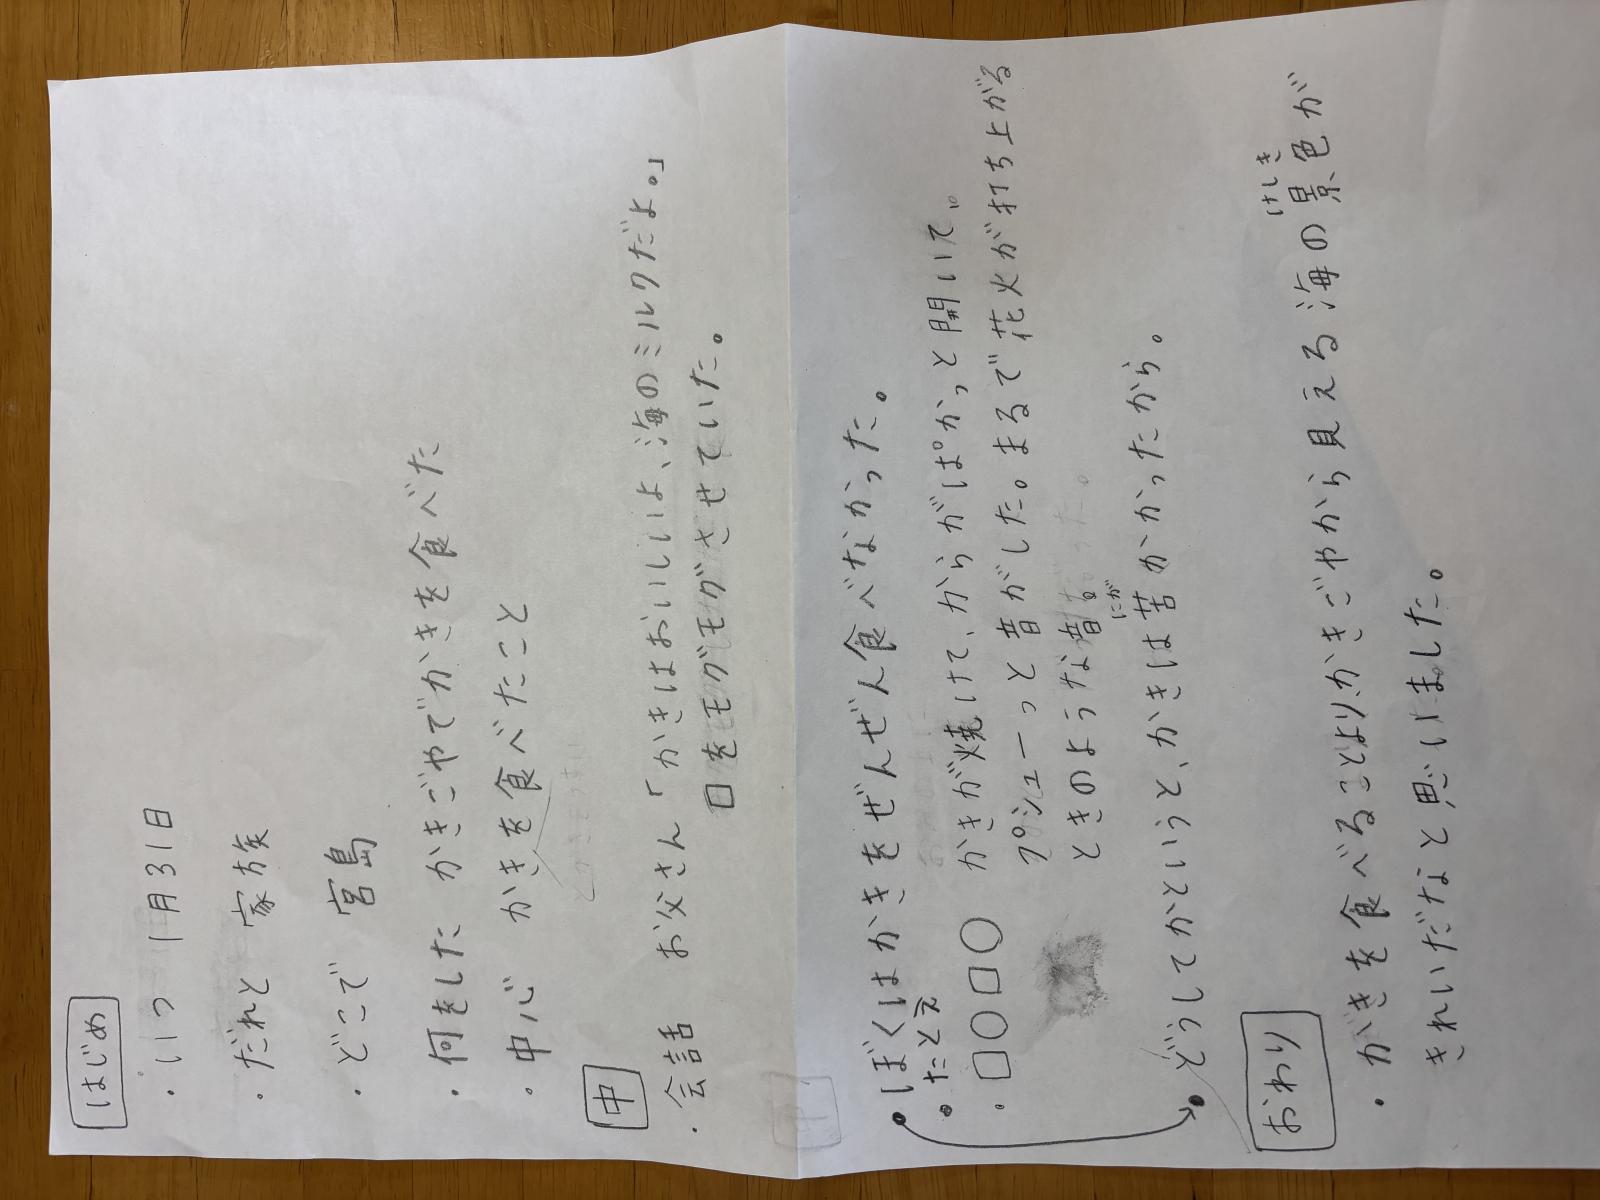 はじめ
・いつ 1月31日
・だれと 家族
・どこで 宮島
・何をした かきごやでかきを食べた
・中心 かきを食べたこと
中
・会話 お父さん「かきはおいしいよ、海のミルクだよ。」
口をモグモグさせていた。
・ぼくはかきをぜんぜん食べなかった。
・たとえ
・□○□○ かきが焼けて、からがぱかっと開いて。
プシューっと音がした。まるで花火が打ち上がる
ときのような音。
・どうしてかというと、かきは苦かったから。
にが
おわり
・かきを食べることより、かきごやから見える海の景色が
けしき
きれいだなと思いました。